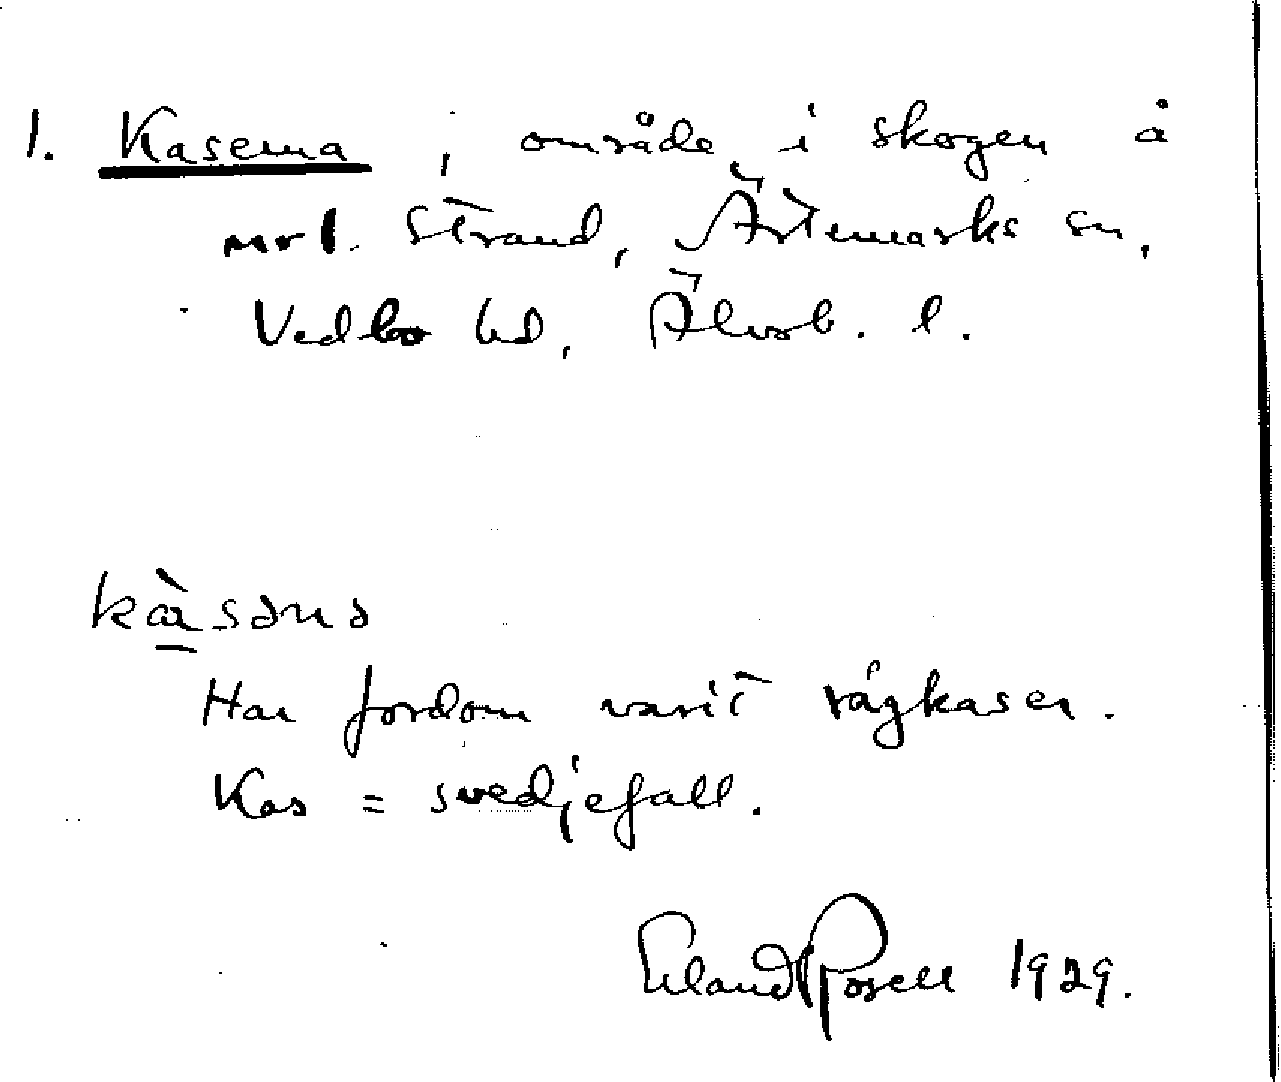 1. Kaserna, område i skogen å
mrl. Strand, Ärtemarks sn,
Vedbo hd, Älvsb. l.
kàsəna
Har fordom varit rågkaser.
Kas = svedjefall.
Erland Rosell 1929.